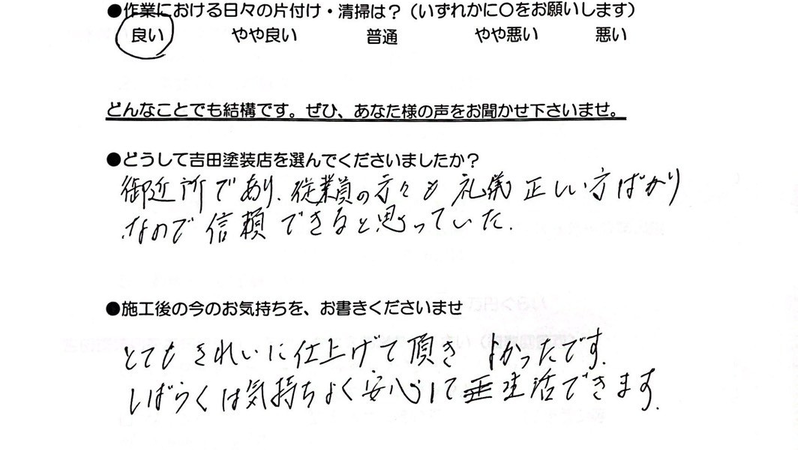 ●作業における日々の片付け・清掃は？（いずれかに〇をお願いします）
良い やや良い 普通 やや悪い 悪い
どんなことでも結構です。ぜひ、あなた様の声をお聞かせ下さいませ。
●どうして吉田塗装店を選んでくださいましたか？
御近所であり、従業員の方々も礼儀正しい方ばかり
なので信頼できると思っていた.
●施工後の今のお気持ちを、お書きくださいませ
とてもきれいに仕上げて頂き よかったです.
しばらくは気持ちよく安心して生活できます.